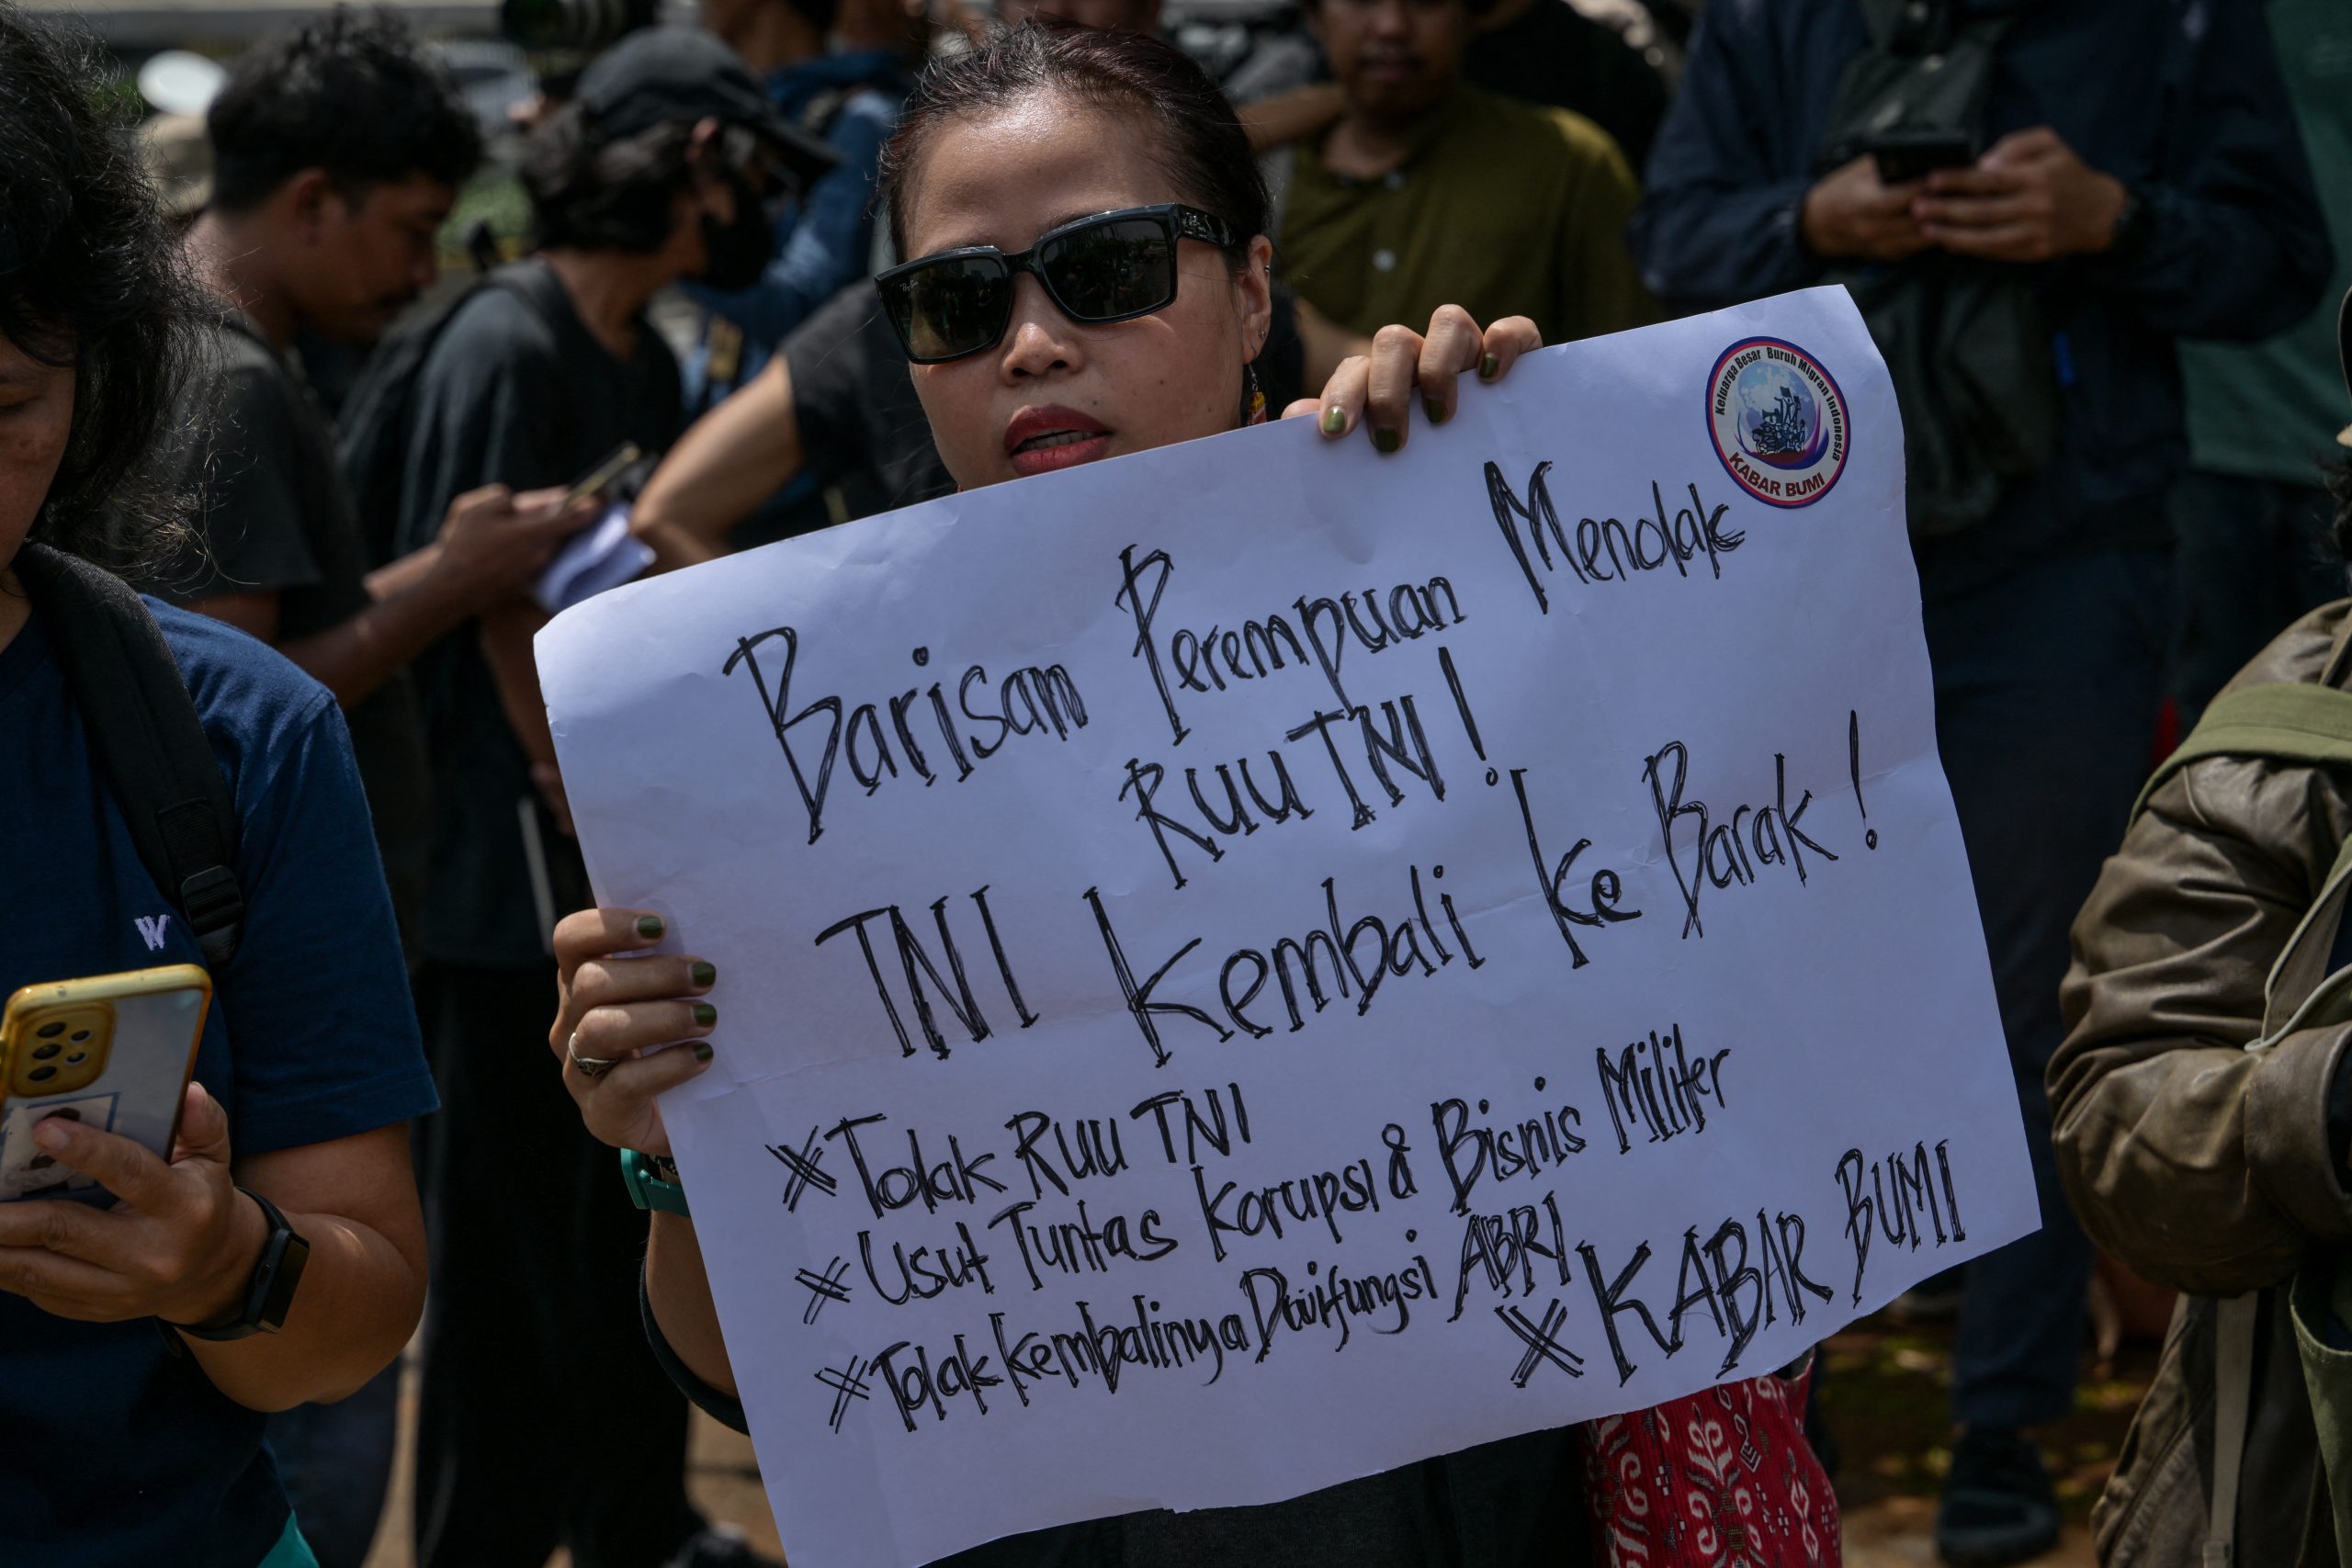 Keluarga Besar Buruh Migran Indonesia
KABAR BUMI
Barisan Perempuan Menolak
RUU TNI!
TNI Kembali Ke Barak!
#Tolak RUU TNI
#Usut Tuntas Korupsi & Bisnis Militer
#Tolak Kembalinya Dwifungsi ABRI
X KABAR BUMI
W
Ray-Ban